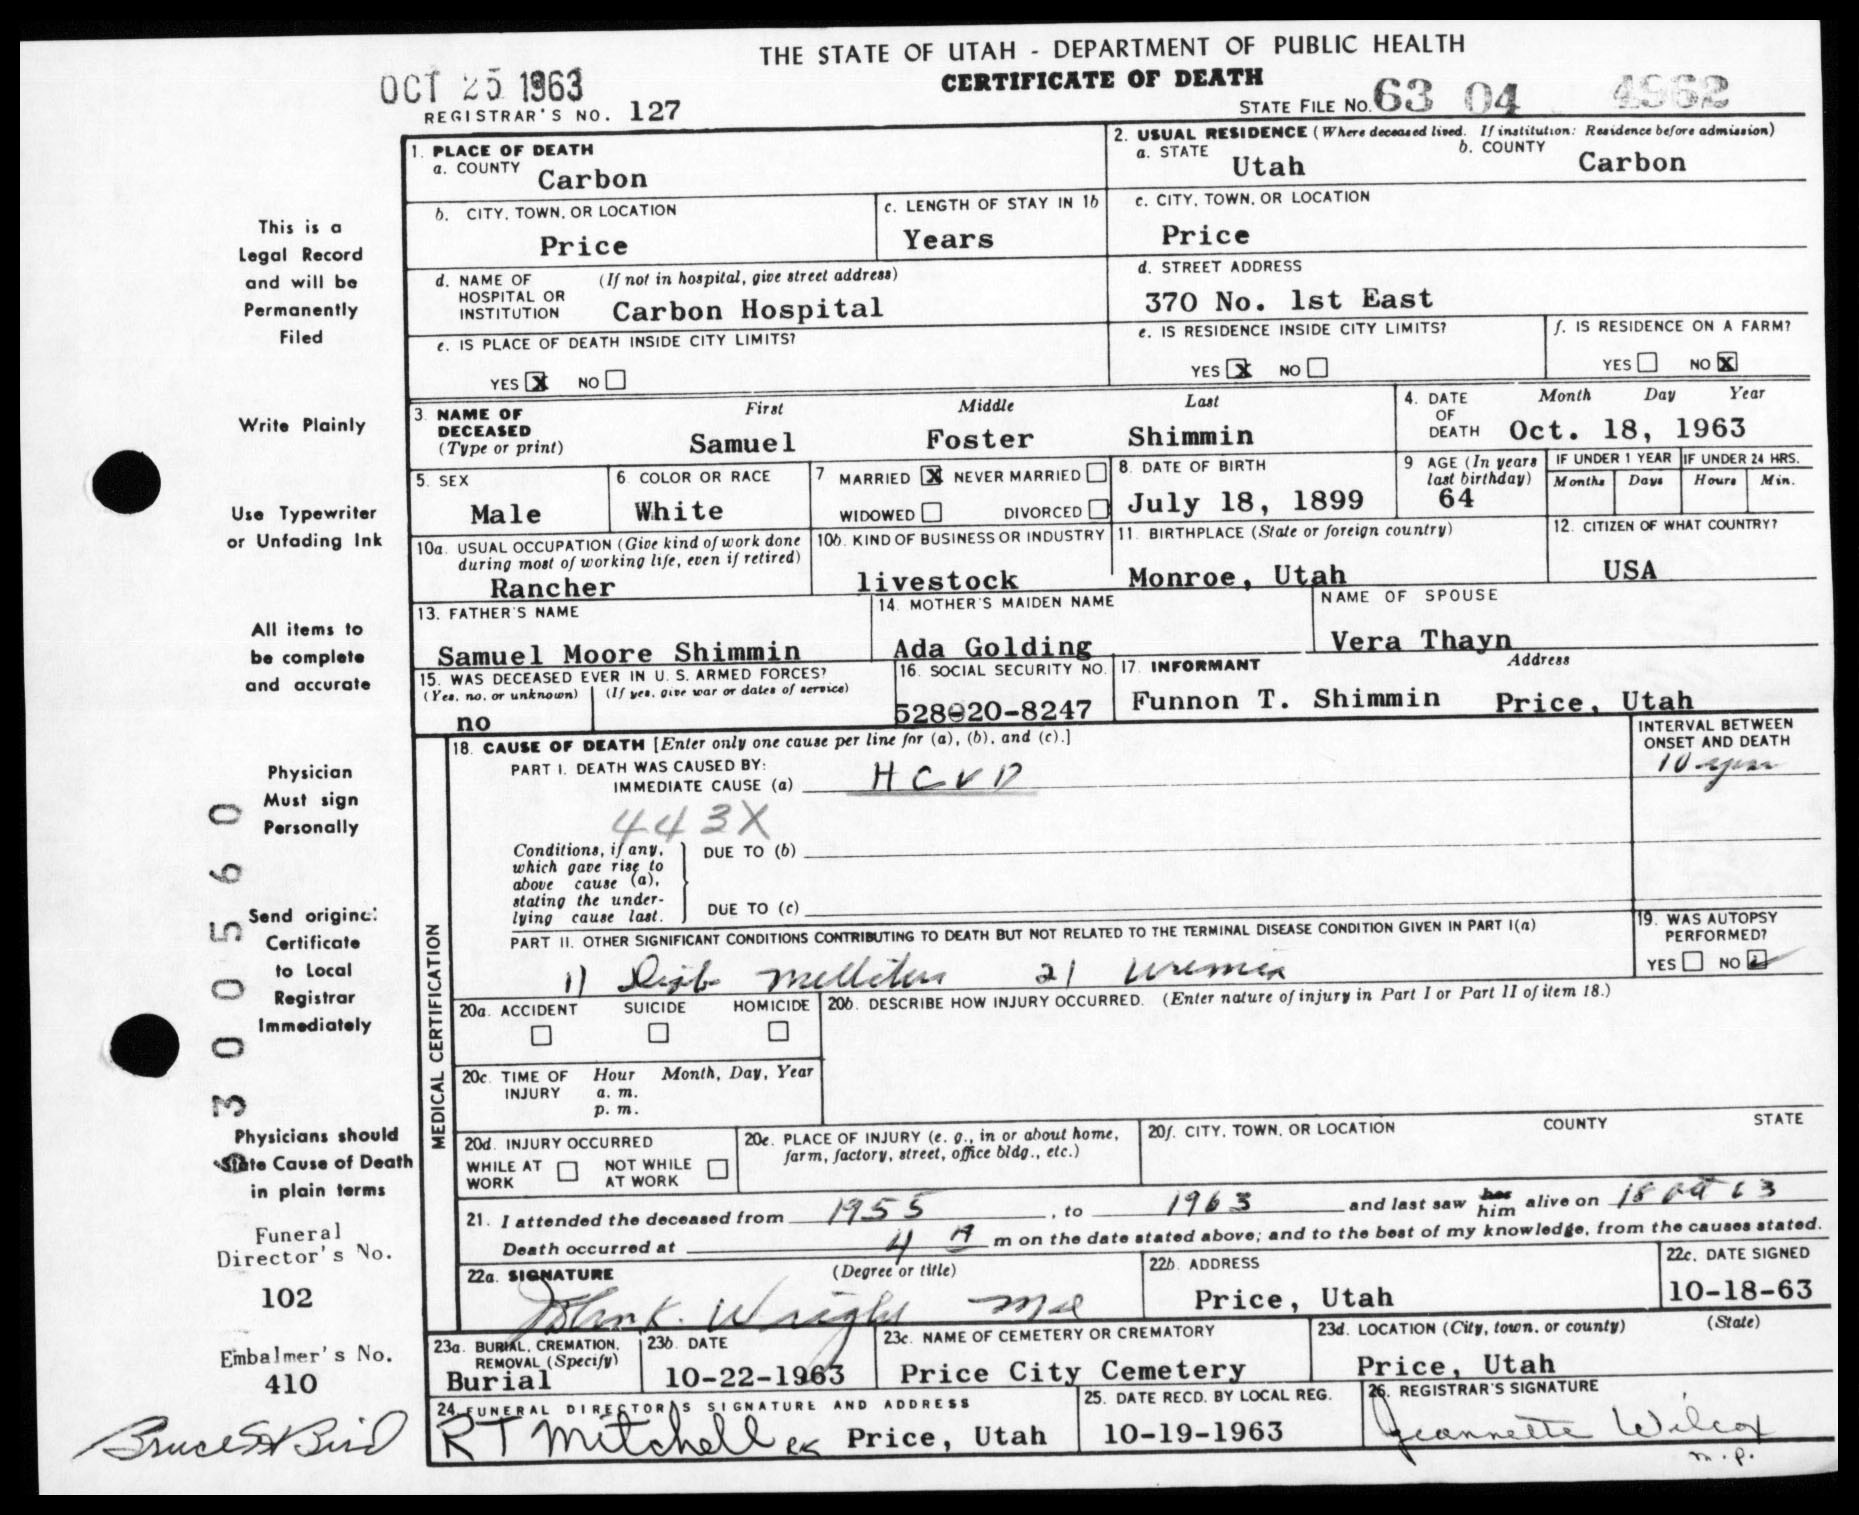 THE STATE OF UTAH - DEPARTMENT OF PUBLIC HEALTH
CERTIFICATE OF DEATH
OCT 25 1963
REGISTRAR'S NO. 127
STATE FILE NO. 63 04 4962
This is a
Legal Record
and will be
Permanently
Filed
Write Plainly
Use Typewriter
or Unfading Ink
All items to
be complete
and accurate
Physician
Must sign
Personally
Send original
Certificate
to Local
Registrar
Immediately
Physicians should
State Cause of Death
in plain terms
Funeral
Director's No.
102
Embalmer's No.
410
Bruce H Bird
300560
1. PLACE OF DEATH
a. COUNTY Carbon
2. USUAL RESIDENCE (Where deceased lived. If institution: Residence before admission)
a. STATE Utah b. COUNTY Carbon
b. CITY, TOWN, OR LOCATION Price
c. LENGTH OF STAY IN 1b Years
c. CITY, TOWN, OR LOCATION Price
d. NAME OF HOSPITAL OR INSTITUTION (If not in hospital, give street address) Carbon Hospital
d. STREET ADDRESS 370 No. 1st East
e. IS PLACE OF DEATH INSIDE CITY LIMITS? YES X NO
e. IS RESIDENCE INSIDE CITY LIMITS? YES X NO
f. IS RESIDENCE ON A FARM? YES NO X
3. NAME OF DECEASED (Type or print) First Middle Last
Samuel Foster Shimmin
4. DATE OF DEATH Month Day Year
Oct. 18, 1963
5. SEX Male
6. COLOR OR RACE White
7 MARRIED X NEVER MARRIED
WIDOWED DIVORCED
8. DATE OF BIRTH July 18, 1899
9 AGE (In years last birthday) 64
IF UNDER 1 YEAR Months Days
IF UNDER 24 HRS. Hours Min.
10a. USUAL OCCUPATION (Give kind of work done during most of working life, even if retired) Rancher
10b. KIND OF BUSINESS OR INDUSTRY livestock
11. BIRTHPLACE (State or foreign country) Monroe, Utah
12. CITIZEN OF WHAT COUNTRY? USA
13. FATHER'S NAME Samuel Moore Shimmin
14. MOTHER'S MAIDEN NAME Ada Golding
NAME OF SPOUSE Vera Thayn
15. WAS DECEASED EVER IN U. S. ARMED FORCES?
(Yes, no, or unknown) (If yes, give war or dates of service)
no
16. SOCIAL SECURITY NO. 528-20-8247
17. INFORMANT Address
Funnon T. Shimmin Price, Utah
MEDICAL CERTIFICATION
18. CAUSE OF DEATH [Enter only one cause per line for (a), (b), and (c).]
INTERVAL BETWEEN ONSET AND DEATH
PART I. DEATH WAS CAUSED BY:
IMMEDIATE CAUSE (a) HCVD 10 years
443X
Conditions, if any, which gave rise to above cause (a), stating the underlying cause last.
DUE TO (b)
DUE TO (c)
PART II. OTHER SIGNIFICANT CONDITIONS CONTRIBUTING TO DEATH BUT NOT RELATED TO THE TERMINAL DISEASE CONDITION GIVEN IN PART I(a)
1) Diab mellitus 2) uremia
19. WAS AUTOPSY PERFORMED? YES NO
20a. ACCIDENT SUICIDE HOMICIDE
20b. DESCRIBE HOW INJURY OCCURRED. (Enter nature of injury in Part I or Part II of item 18.)
20c. TIME OF INJURY Hour Month, Day, Year
a. m.
p. m.
20d. INJURY OCCURRED
WHILE AT WORK NOT WHILE AT WORK
20e. PLACE OF INJURY (e. g., in or about home, farm, factory, street, office bldg., etc.)
20f. CITY, TOWN, OR LOCATION COUNTY STATE
21. I attended the deceased from 1955, to 1963 and last saw her him alive on 18 Oct 63
Death occurred at 4 A m on the date stated above; and to the best of my knowledge, from the causes stated.
22a. SIGNATURE (Degree or title)
Wright Md
22b. ADDRESS Price, Utah
22c. DATE SIGNED 10-18-63
23a. BURIAL, CREMATION, REMOVAL (Specify) Burial
23b. DATE 10-22-1963
23c. NAME OF CEMETERY OR CREMATORY Price City Cemetery
23d. LOCATION (City, town, or county) (State) Price, Utah
24. FUNERAL DIRECTOR'S SIGNATURE AND ADDRESS
R T Mitchell Price, Utah
25. DATE RECD. BY LOCAL REG. 10-19-1963
26. REGISTRAR'S SIGNATURE
Jeannette Wilcox
m.p.